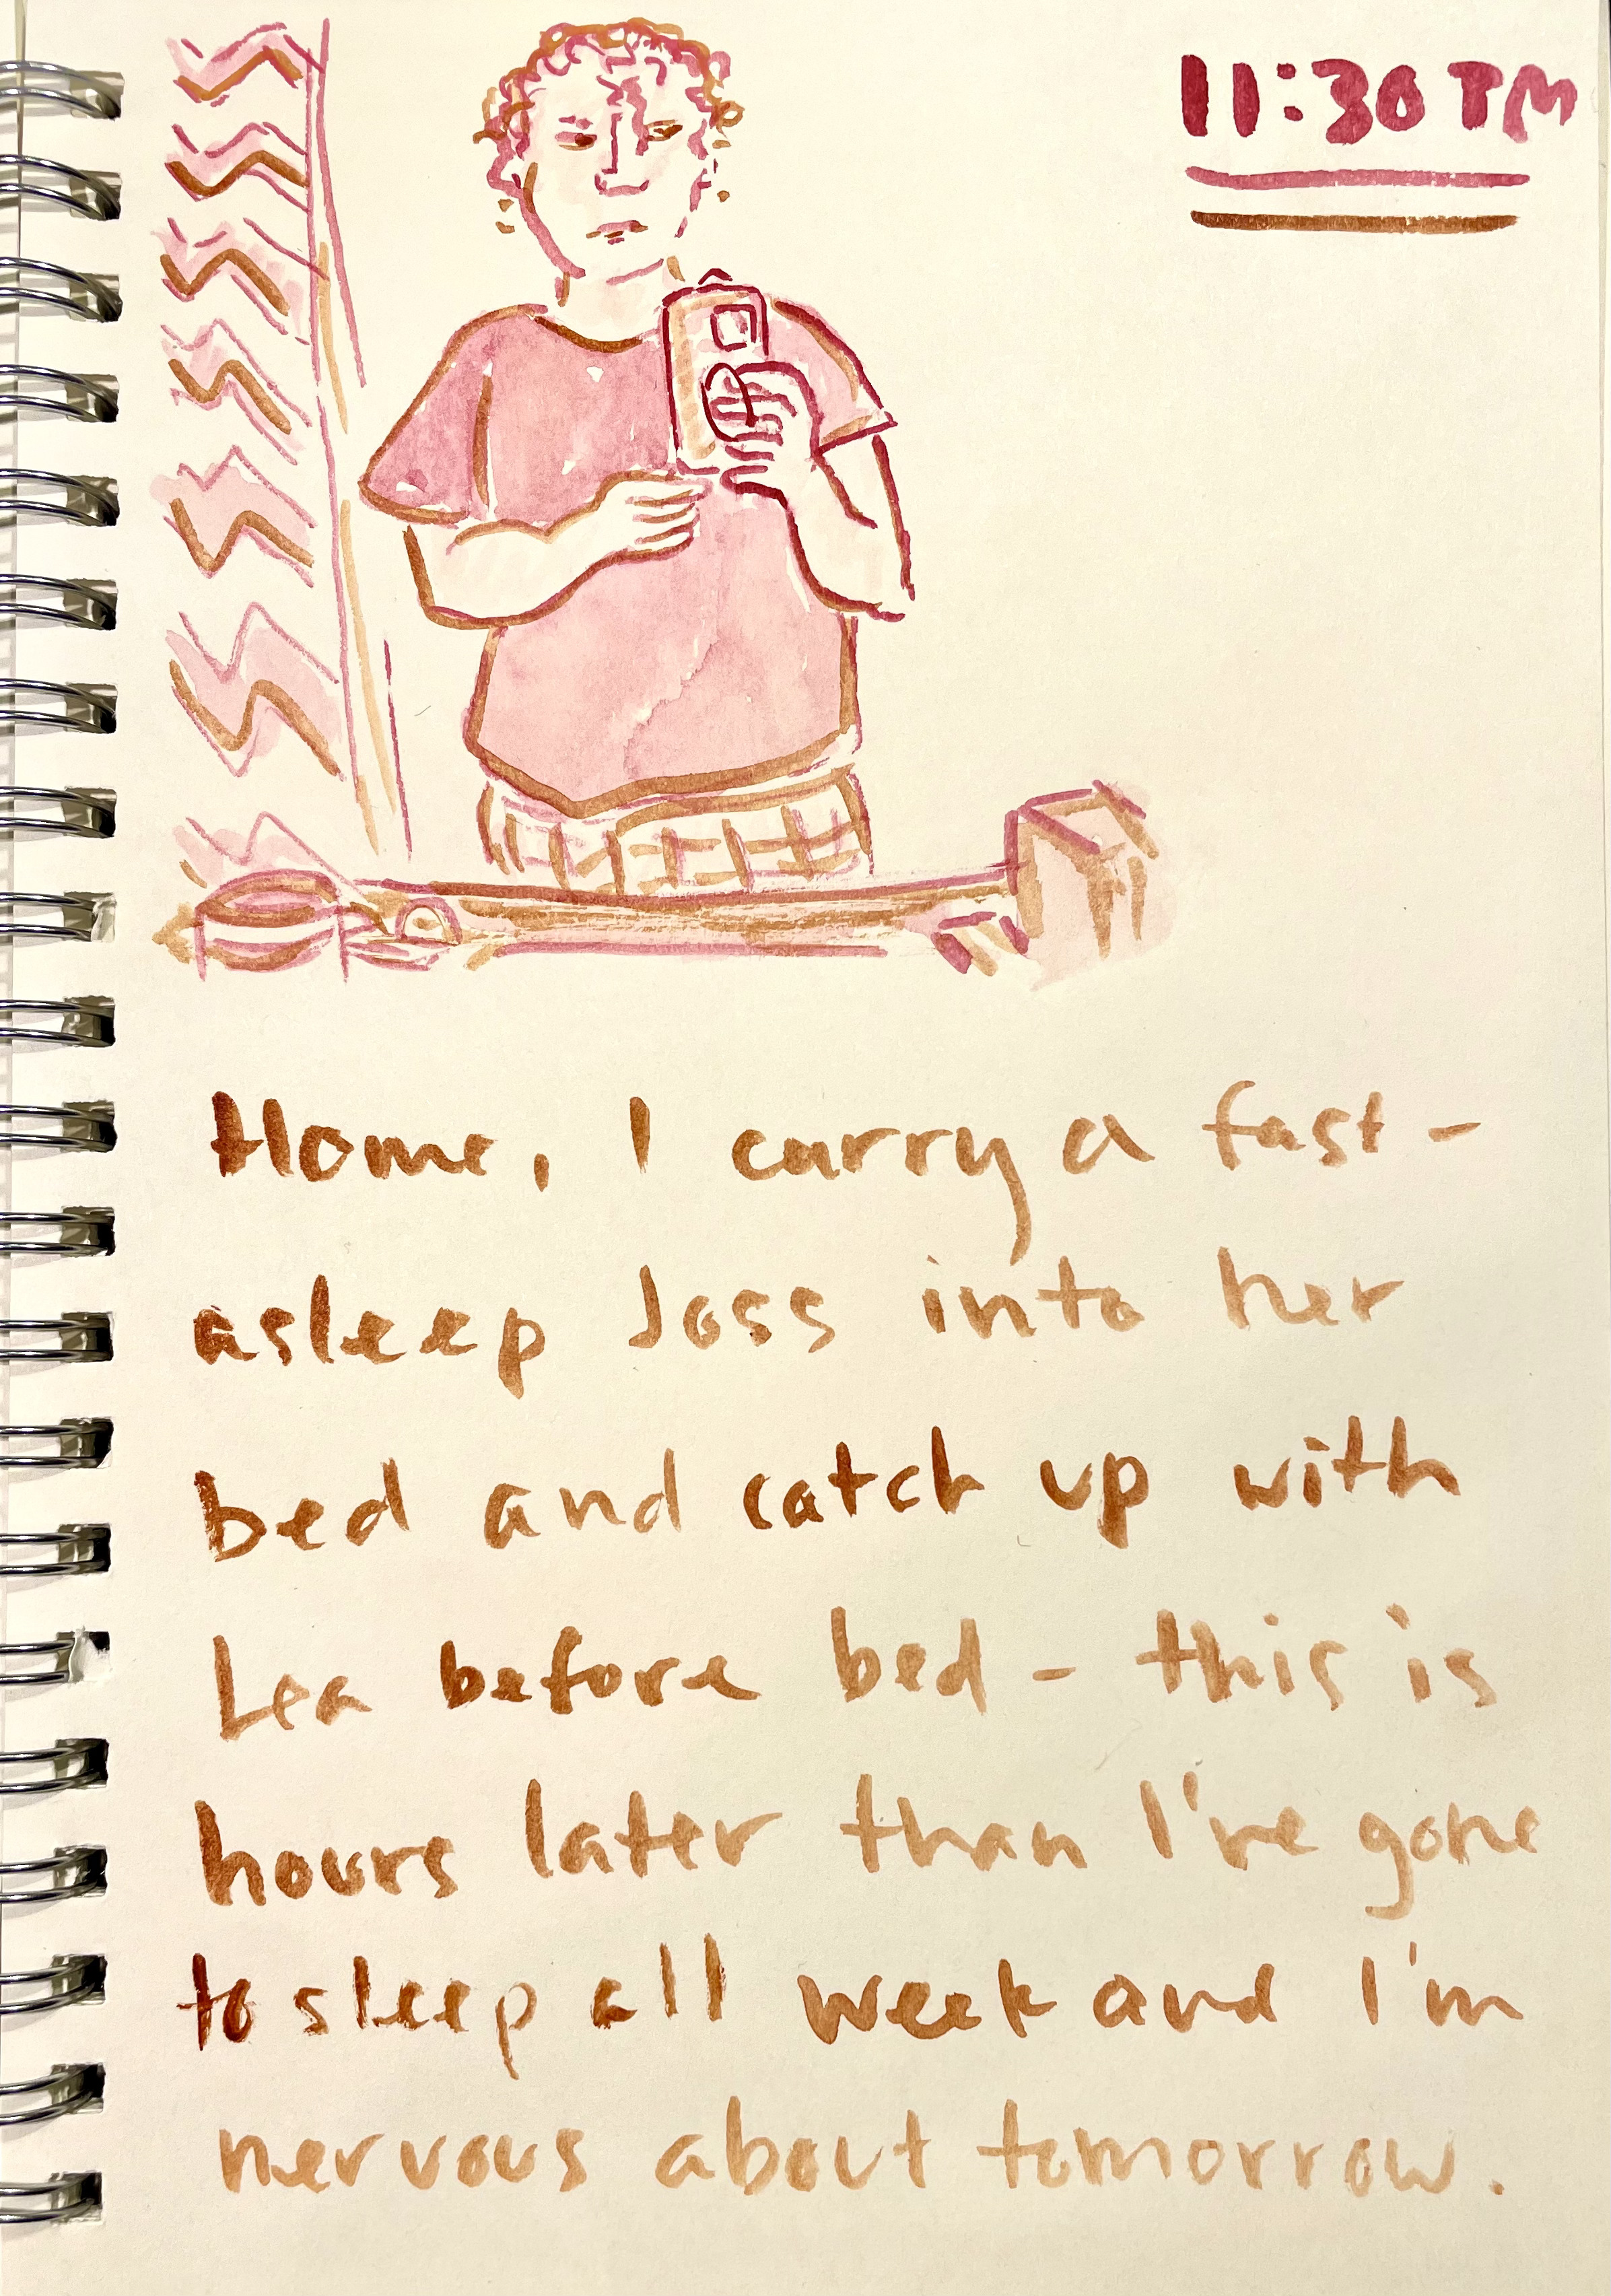 11:30 PM
Home, I carry a fast-
asleep Joss into her
bed and catch up with
Lea before bed - this is
hours later than I've gone
to sleep all week and I'm
nervous about tomorrow.